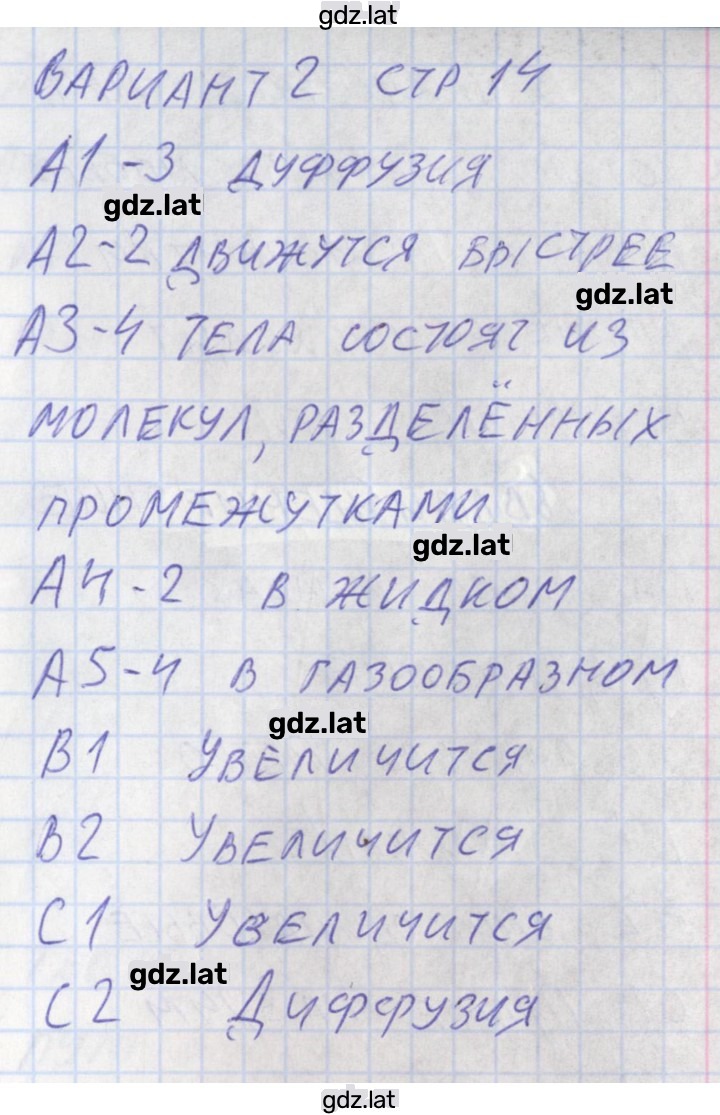 gdz.lat
ВАРИАНТ 2 СТР 14
А1-3 ДУФФУЗИЯ
gdz.lat
А2-2 ДВИЖУТСЯ БЫСТРЕЕ
gdz.lat
А3-4 ТЕЛА СОСТОЯТ ИЗ
МОЛЕКУЛ, РАЗДЕЛЁННЫХ
ПРОМЕЖУТКАМИ
gdz.lat
А4-2 В ЖИДКОМ
А5-4 В ГАЗООБРАЗНОМ
gdz.lat
В1 УВЕЛИЧИТСЯ
В2 УВЕЛИЧИТСЯ
С1 УВЕЛИЧИТСЯ
gdz.lat
С2 ДИФФУЗИЯ
gdz.lat